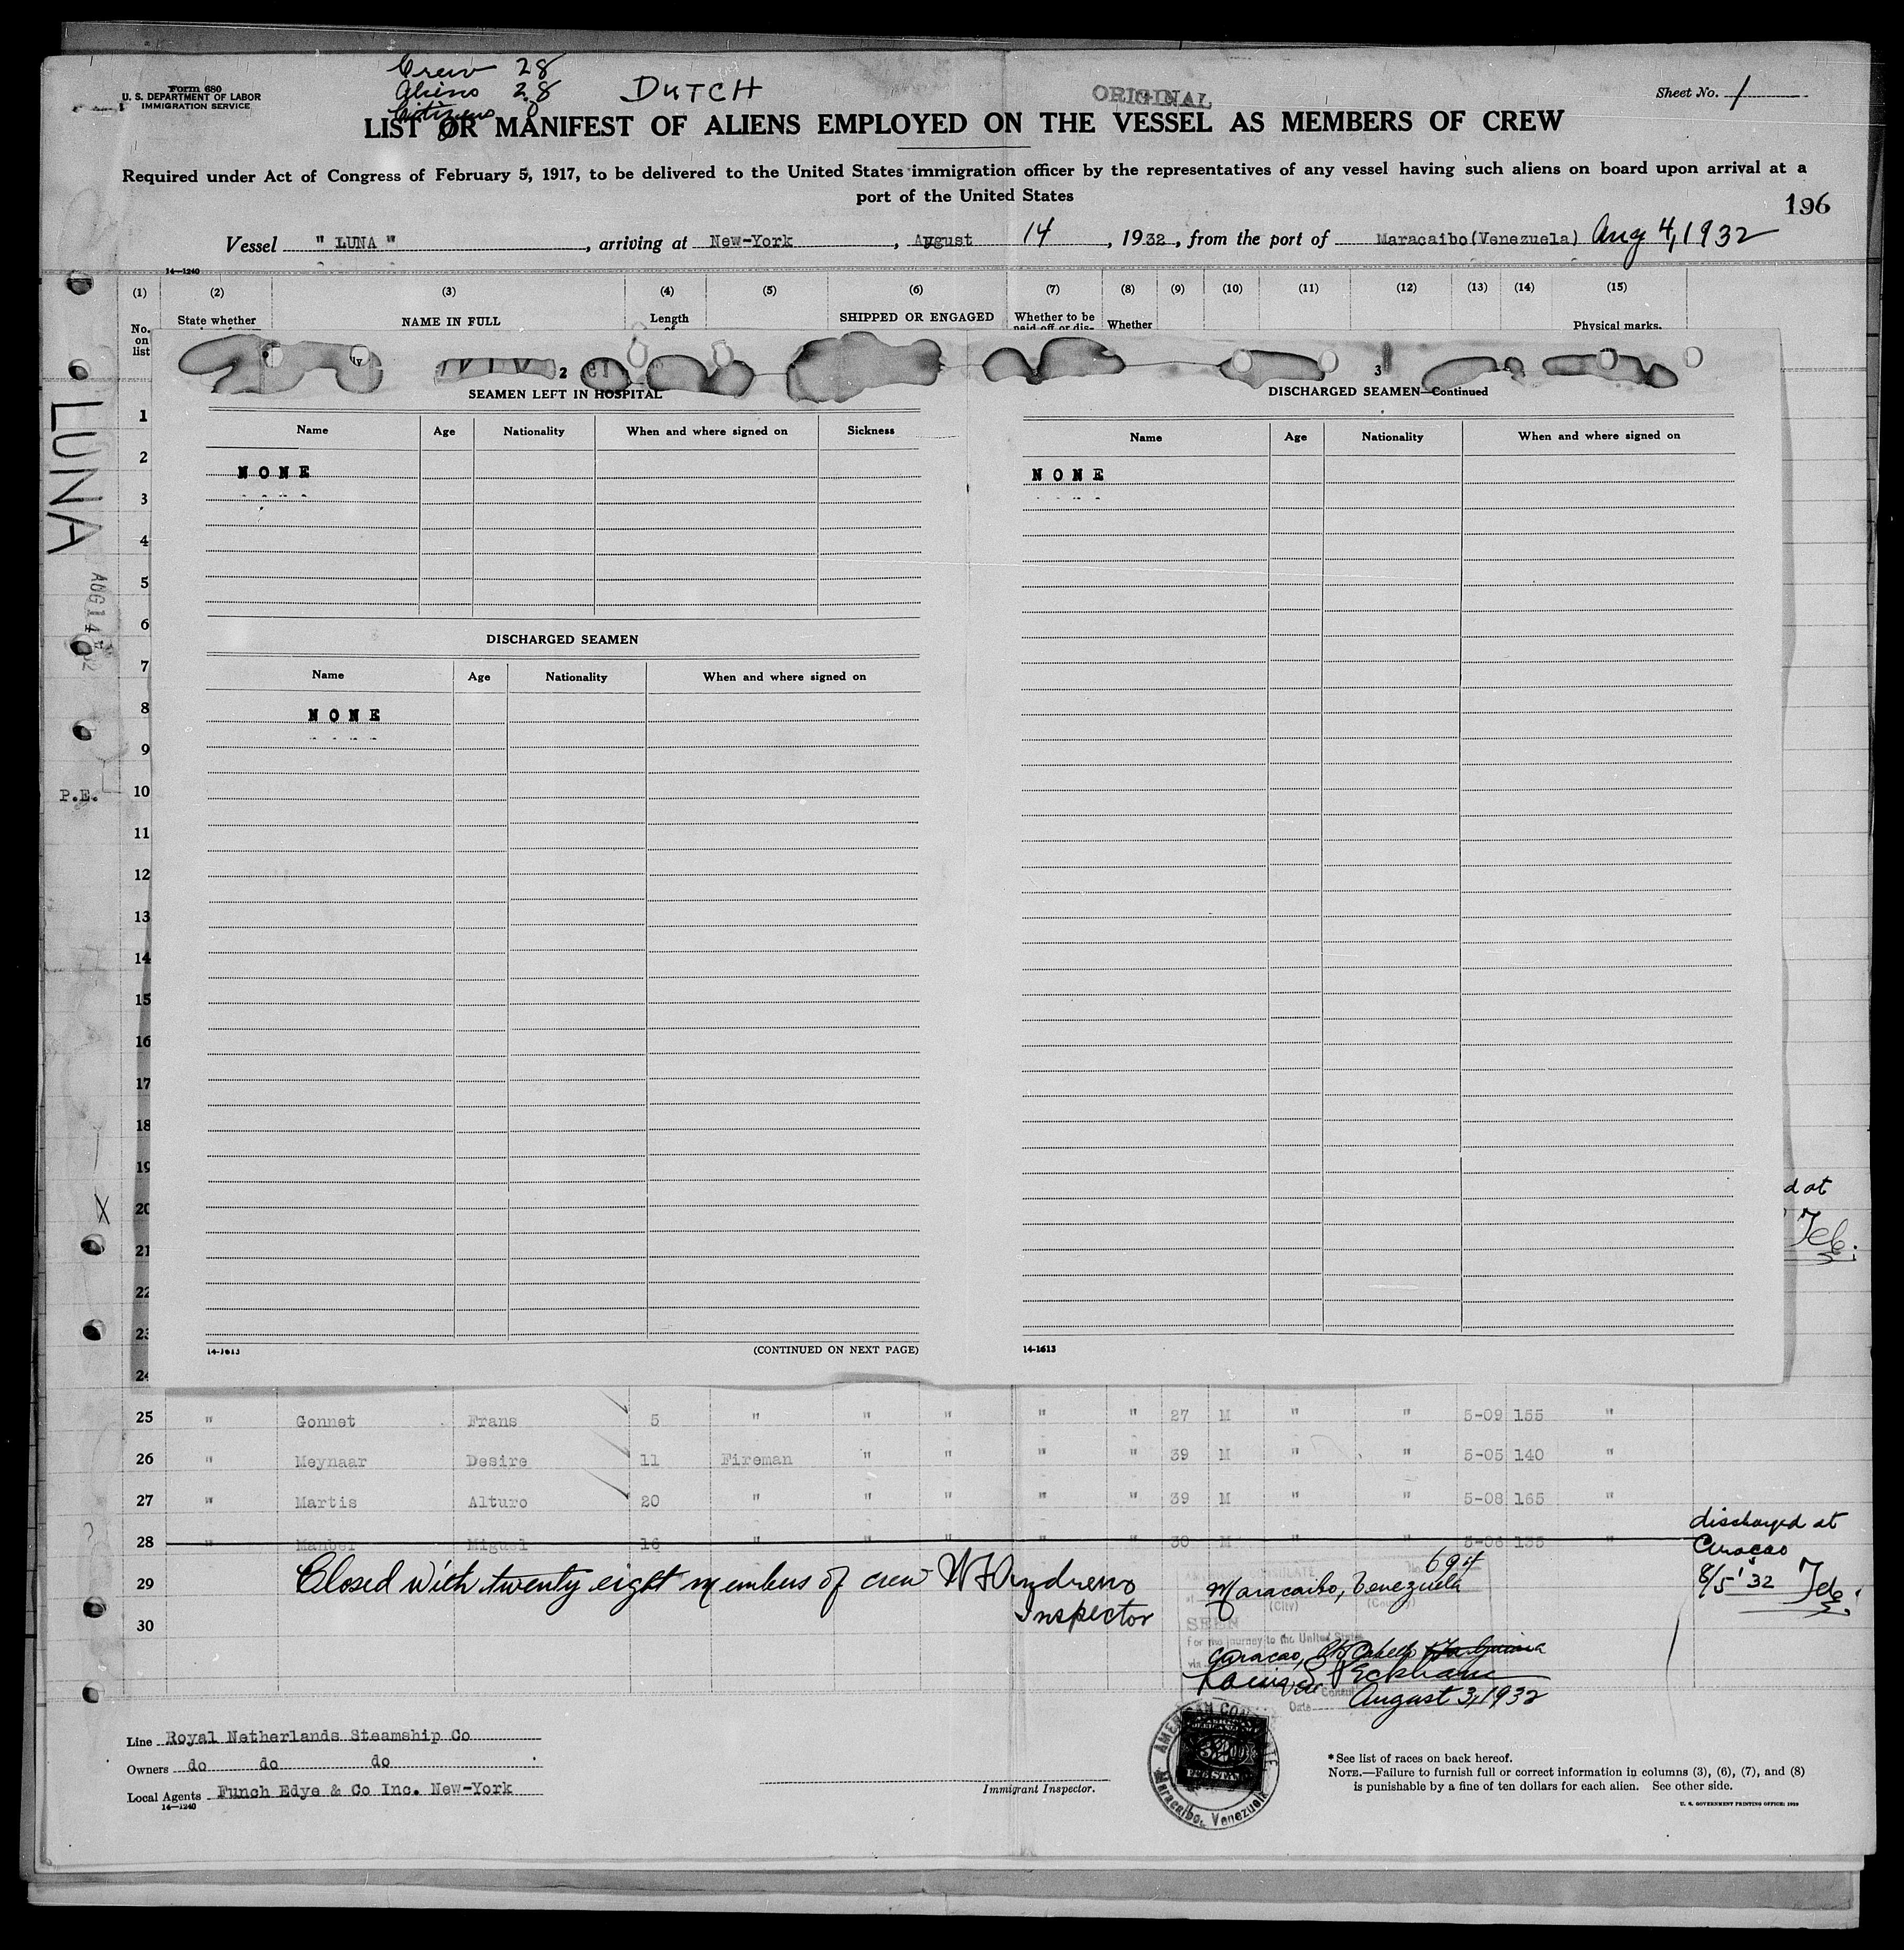 Crew 28
Aliens 28
Citizens 0
DUTCH
ORIGINAL
Form 680
U. S. DEPARTMENT OF LABOR
IMMIGRATION SERVICE
Sheet No. 1
LIST OR MANIFEST OF ALIENS EMPLOYED ON THE VESSEL AS MEMBERS OF CREW
Required under Act of Congress of February 5, 1917, to be delivered to the United States immigration officer by the representatives of any vessel having such aliens on board upon arrival at a
port of the United States
196
Vessel " LUNA ", arriving at New-York, August 14, 1932, from the port of Maracaibo(Venezuela) Aug 4, 1932
14-1240
(1) (2) (3) (4) (5) (6) (7) (8) (9) (10) (11) (12) (13) (14) (15)
No. on list State whether NAME IN FULL Length of SHIPPED OR ENGAGED Whether to be paid off or dis- Whether Physical marks,
LUNA
AUG 14
P.E.
X
2
SEAMEN LEFT IN HOSPITAL
Name Age Nationality When and where signed on Sickness
NONE
DISCHARGED SEAMEN
Name Age Nationality When and where signed on
NONE
14-1613 (CONTINUED ON NEXT PAGE)
3
DISCHARGED SEAMEN—Continued
Name Age Nationality When and where signed on
NONE
14-1613
1
2
3
4
5
6
7
8
9
10
11
12
13
14
15
16
17
18
19
20
21
22
23
24
d at
25 " Gonnet Frans 5 " " " " " 27 M " " 5-09 155 "
26 " Meynaar Desire 11 Fireman " " " " 39 M " " 5-05 140 "
27 " Martis Alturo 20 " " " " " 39 M " " 5-08 165 "
28 " Miguel 16 " " " " " 30 M " " 5-06 135 "
discharged at
Curaçao
8/5' 32
29 Closed with twenty eight members of crew
Inspector
30
694
Maracaibo, Venezuela
(City) (Country)
SEEN
For the journey to the United States
via Curacao, Pto Cabello
Consul
Date August 3, 1932
AMERICAN CONSULATE
Maracaibo, Venezuela
Line Royal Netherlands Steamship Co
Owners do do do
Local Agents Funch Edye & Co Inc. New-York
14-1240
Immigrant Inspector.
* See list of races on back hereof.
NOTE.—Failure to furnish full or correct information in columns (3), (6), (7), and (8)
is punishable by a fine of ten dollars for each alien. See other side.
U. S. GOVERNMENT PRINTING OFFICE: 1929